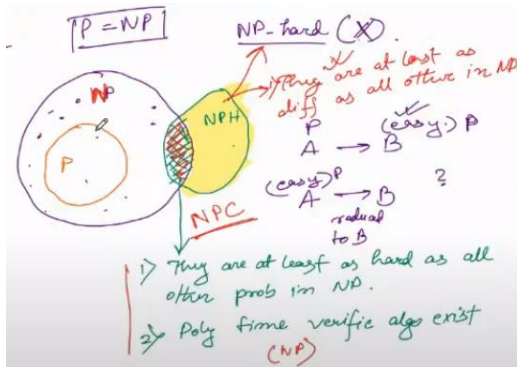 P = NP
NP-hard (X).
1) They are at least as
diff as all other in NP
NP
P
NPH
NPC
P (easy.) P
A → B
(easy) P
A → B ?
reduced
to B
1) They are at least as hard as all
other prob in NP.
2) Poly time verific algo exist
(NP)